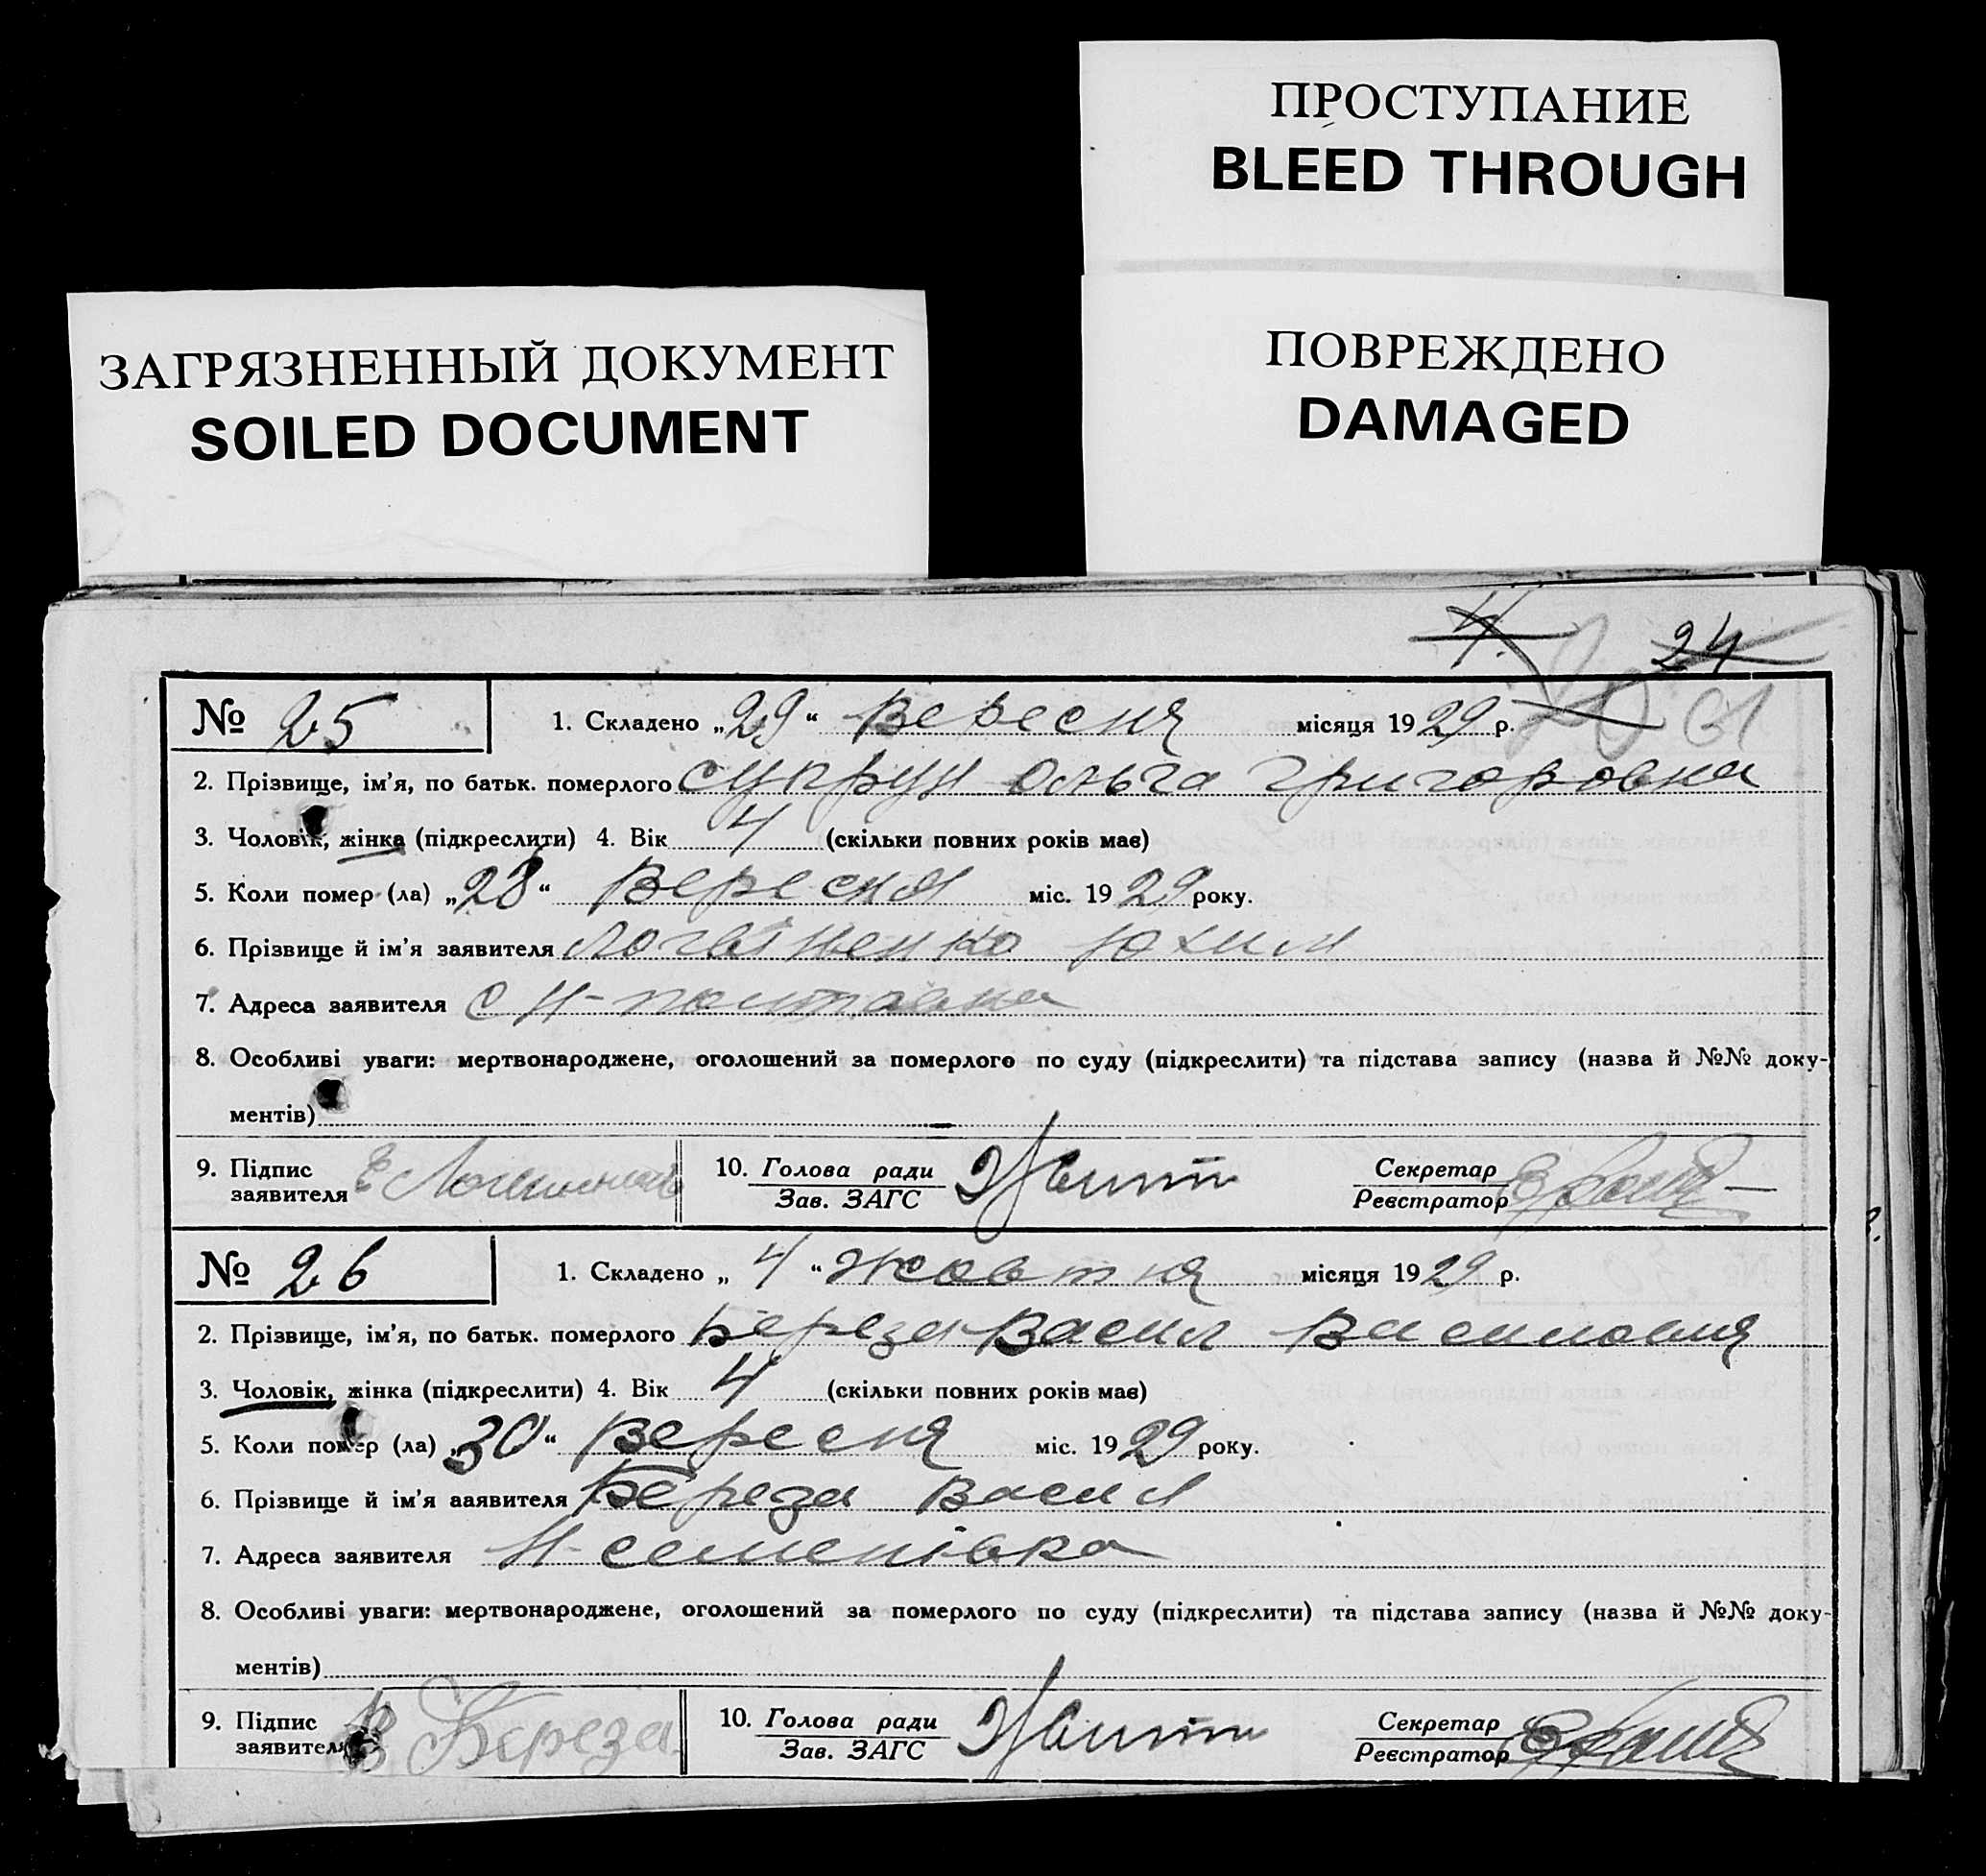 ПРОСТУПАНИЕ
BLEED THROUGH
ЗАГРЯЗНЕННЫЙ ДОКУМЕНТ
SOILED DOCUMENT
ПОВРЕЖДЕНО
DAMAGED
4. 24
№ 25 1. Складено „29“ Вересня місяця 1929 р. 61
2. Прізвище, ім'я, по батьк. померлого Супрун Ольга Григоровна
3. Чоловік, жінка (підкреслити) 4. Вік 4 (скільки повних років має)
5. Коли помер (ла) „28“ Вересня міс. 1929 року.
6. Прізвище й ім'я заявителя Логвіненко Юхим
7. Адреса заявителя с Н-полтавка
8. Особливі уваги: мертвонароджене, оголошений за померлого по суду (підкреслити) та підстава запису (назва й №№ доку-
ментів)
9. Підпис заявителя
10. Голова ради
Зав. ЗАГС
Секретар
Реєстратор
№ 26 1. Складено „4“ Жовтня місяця 1929 р.
2. Прізвище, ім'я, по батьк. померлого Береза Васил Василовия
3. Чоловік, жінка (підкреслити) 4. Вік 4 (скільки повних років має)
5. Коли помер (ла) „30“ Вересня міс. 1929 року.
6. Прізвище й ім'я заявителя Береза Васил
7. Адреса заявителя Н-семенівка
8. Особливі уваги: мертвонароджене, оголошений за померлого по суду (підкреслити) та підстава запису (назва й №№ доку-
ментів)
9. Підпис заявителя В Береза
10. Голова ради
Зав. ЗАГС
Секретар
Реєстратор